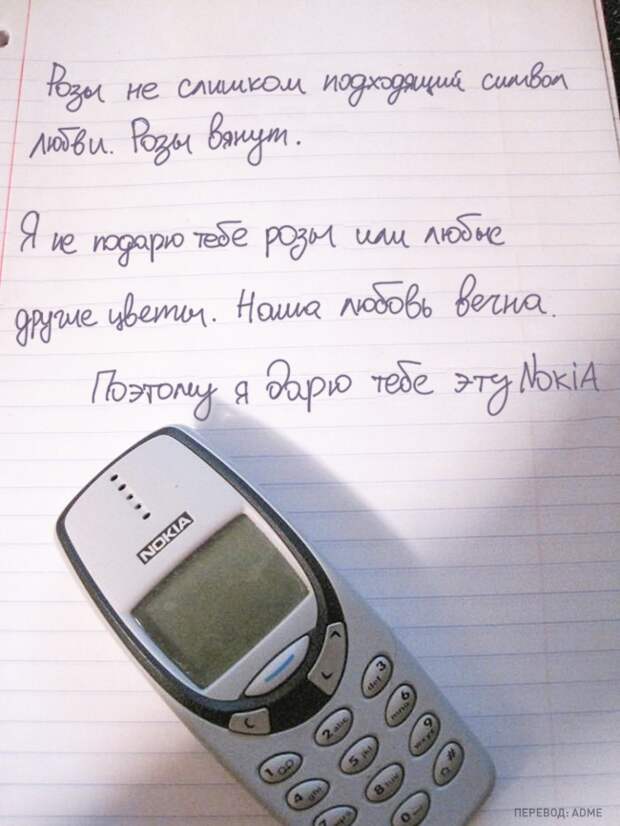 Розы не слишком подходящий символ
любви. Розы вянут.
Я не подарю тебе розы или любые
другие цветы. Наша любовь вечна.
Поэтому я дарю тебе эту NokiA
NOKIA
C
1
2 abc
3 def
4 ghi
5 jkl
6 mno
7 pqrs
8 tuv
9 wxyz
0
#
ПЕРЕВОД: ADME